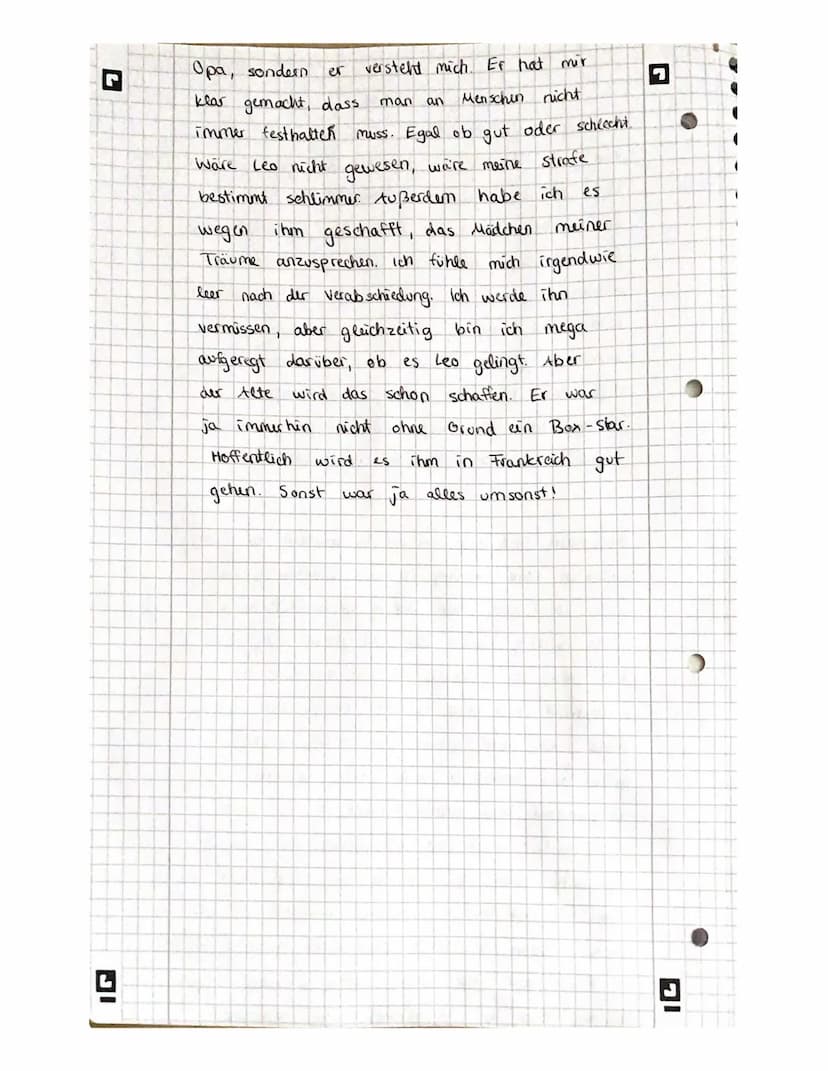 Opa, sondern er versteht mich. Er hat mir
klar gemacht, dass man an Menschen nicht
immer festhalten muss. Egal ob gut oder schlecht.
Wäre Leo nicht gewesen, wäre meine Strafe
bestimmt schlimmer. Außerdem habe ich es
wegen ihm geschafft, das Mädchen meiner
Träume anzusprechen. Ich fühle mich irgendwie
leer nach der Verabschiedung. Ich werde ihn
vermissen, aber gleichzeitig bin ich mega
aufgeregt darüber, ob es Leo gelingt. Aber
der Alte wird das schon schaffen. Er war
ja immerhin nicht ohne Grund ein Box-Star.
Hoffentlich wird es ihm in Frankreich gut
gehen. Sonst war ja alles umsonst!